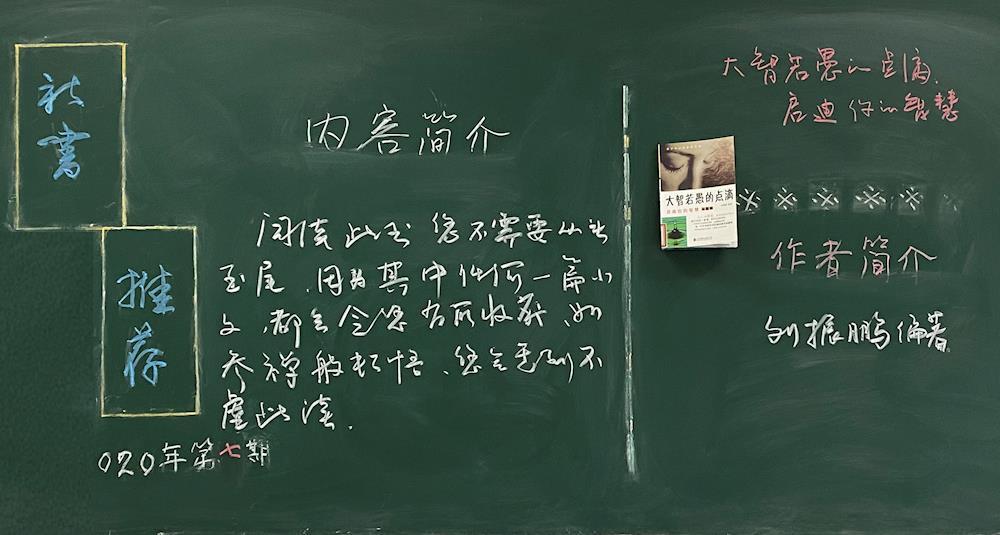 新书
推荐
020年第七期
内容简介
阅读此书 您不需要从头
至尾，因为其中任何一篇小
文，都会令您有所收获，如
参禅般顿悟，您会感到不
虚此读.
大智若愚的点滴，
启迪你的智慧
大智若愚的点滴
※ ※ ※ ※ ※
作者简介
刘振鹏编著